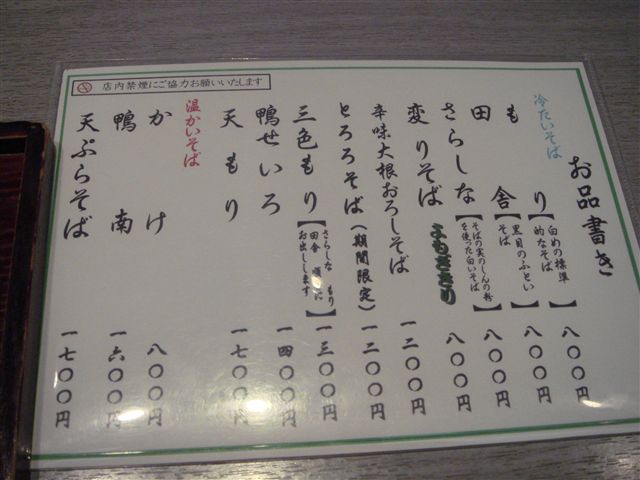 店内禁煙にご協力お願いいたします
お品書き
冷たいそば
もり【白めの標準的なそば】八〇〇円
田舎【黒目のふといそば】八〇〇円
さらしな【そばの実のしんの粉を使った白いそば】八〇〇円
変りそば よもぎきり 八〇〇円
辛味大根おろしそば 一二〇〇円
とろろそば(期間限定) 一二〇〇円
三色もり【さらしな もり 田舎 に お出しします】一三〇〇円
鴨せいろ 一四〇〇円
天もり 一七〇〇円
温かいそば
かけ 八〇〇円
鴨南 一六〇〇円
天ぷらそば 一七〇〇円